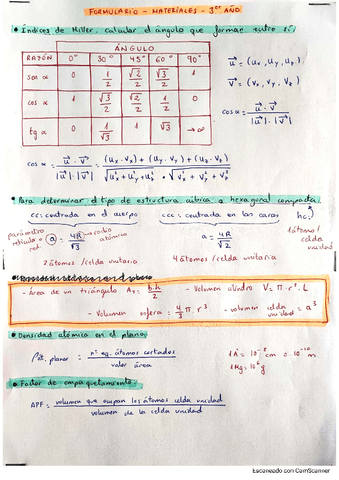 FORMULARIO - MATERIALES - 3er AÑO
Índices de Miller, calcular el ángulo que forman entre sí:
ÁNGULO
RAZÓN 0° 30° 45° 60° 90°
sen α 0 1/2 √2/2 √3/2 1
cos α 1 √3/2 √2/2 1/2 0
tg α 0 1/√3 1 √3 → ∞
u = (ux, uy, uz)
v = (vx, vy, vz)
cos α = u · v / |u| · |v|
cos α = u · v / |u| · |v| = (ux · vx) + (uy · vy) + (uz · vz) / √ux² + uy² + uz² · √vx² + vy² + vz²
Para determinar el tipo de estructura cúbica o hexagonal compacta
cc: centrada en el cuerpo
ccc: centrada en las caras
hc:
parámetro reticular o red
a = 4R/√3
radio atómico
a = 4R/√2
2 átomos/celda unitaria
4 átomos/celda unitaria
átomos/celda unidad
- Área de un triángulo AT = b·h/2
- Volumen cilindro V = π · r² · L
- Volumen esfera = 4/3 π · r³
- volumen celda unidad = a³
Densidad atómica en el plano:
planar = nº eq. átomos cortados / valor área
1 Å = 10⁻⁸ cm o 10⁻¹⁰ m
Factor de empaquetamiento
APF = volumen que ocupan los átomos celda unidad / volumen de la celda unidad
Escaneado con CamScanner